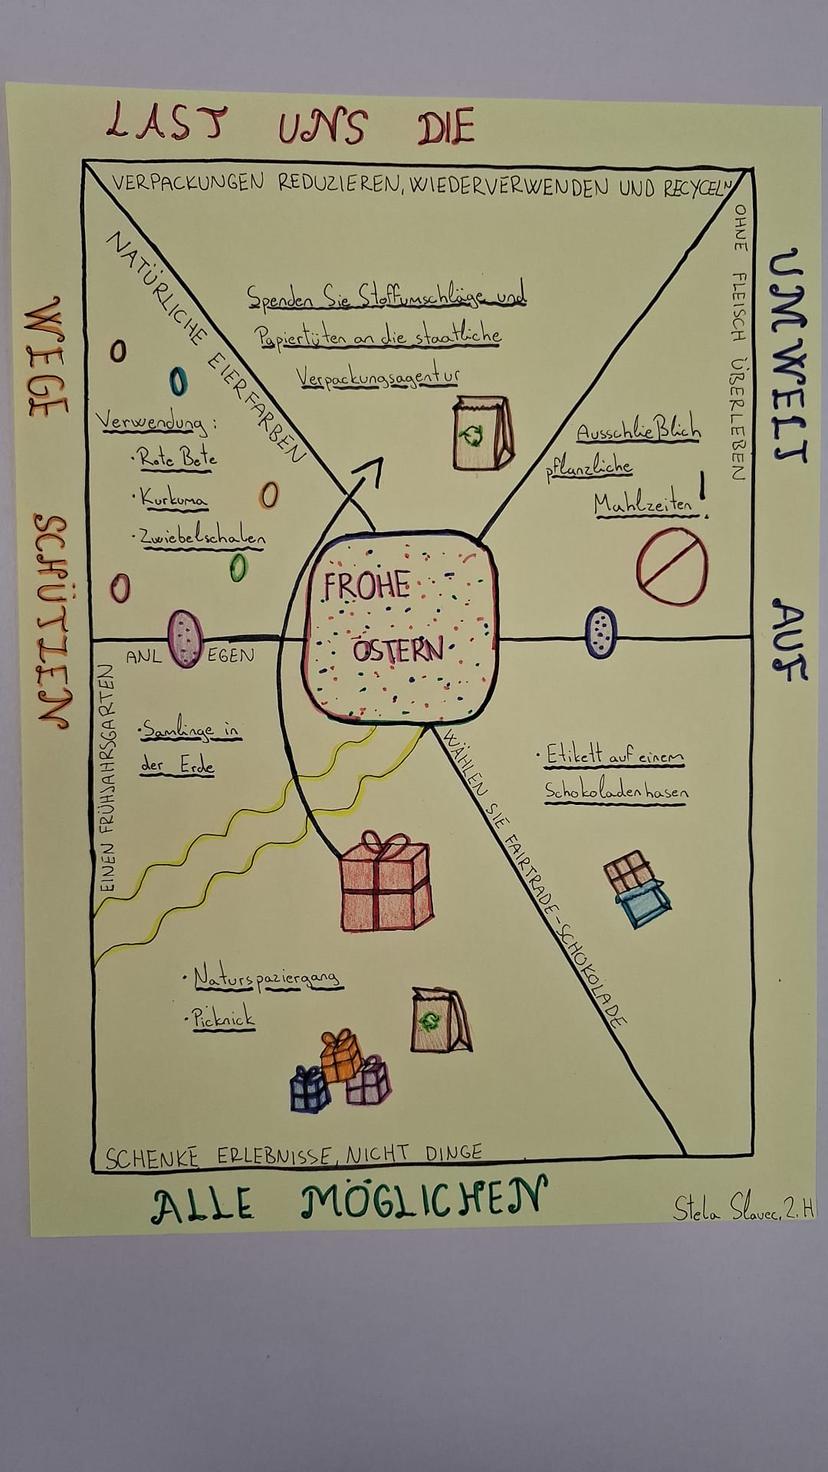 LAST UNS DIE
UMWELT AUF
ALLE MÖGLICHEN
WEGE SCHÜTZEN
VERPACKUNGEN REDUZIEREN, WIEDERVERWENDEN UND RECYCELN
Spenden Sie Stoffumschläge und
Papiertüten an die staatliche
Verpackungsagentur
OHNE FLEISCH ÜBERLEBEN
Ausschließlich
pflanzliche
Mahlzeiten!
NATÜRLICHE EIERFARBEN
Verwendung:
·Rote Bete
·Kurkuma
·Zwiebelschalen
FROHE
OSTERN
EINEN FRÜHJAHRSGARTEN
ANLEGEN
·Samlinge in
der Erde
WÄHLEN SIE FAIRTRADE-SCHOKOLADE
·Etikett auf einem
Schokoladenhasen
·Naturspaziergang
·Picknick
SCHENKE ERLEBNISSE, NICHT DINGE
Stela Slavec, 2. H